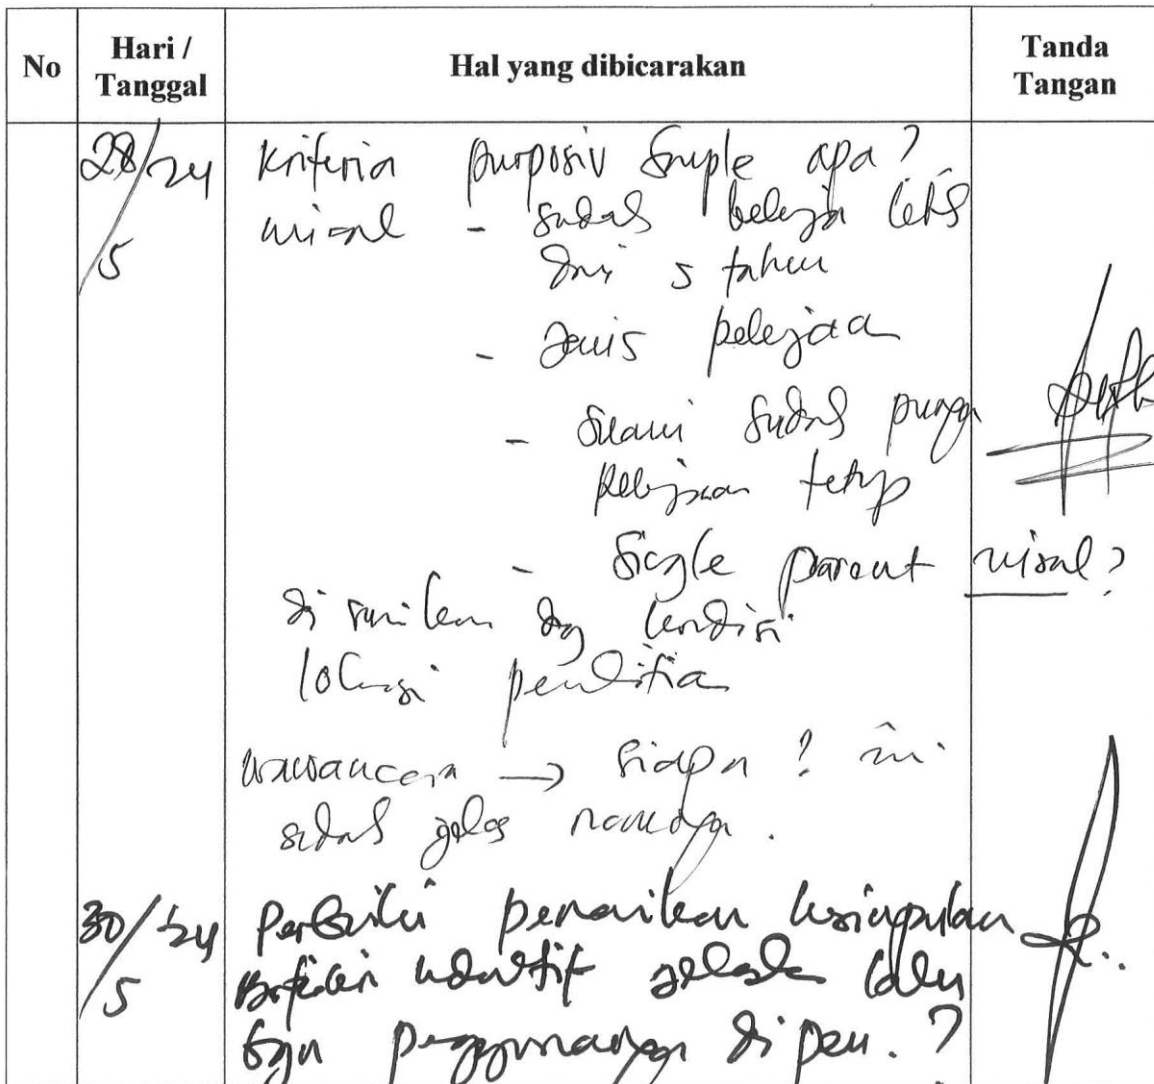 No
Hari / Tanggal
Hal yang dibicarakan
Tanda Tangan
28/5/24
Kriteria purposiv sample apa?
misal - sudah bekerja lebih
dari 5 tahun
- Jenis pekerjaan
- Suami sudah punya
pekerjaan tetap
- Single parent misal?
disesuaikan dg kondisi
lokasi penelitian
wawancara → siapa? ini
sudah jelas
30/5/24
Perbaiki penarikan kesimpulan
berfikir induktif jelaskan lalu
penggunaannya di pen.?